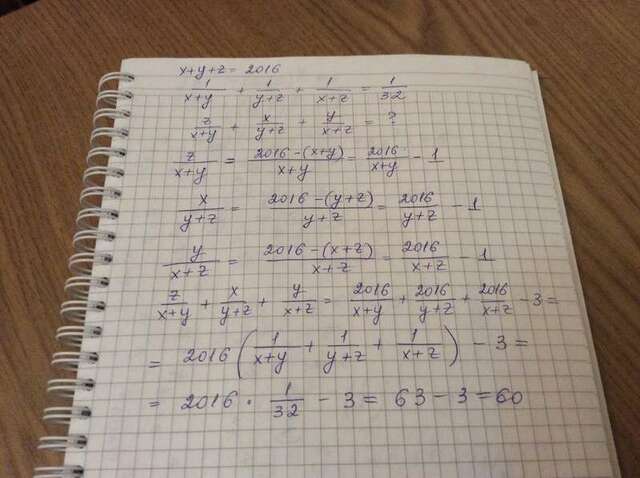 x+y+z = 2016
1/(x+y) + 1/(y+z) + 1/(x+z) = 1/32
z/(x+y) + x/(y+z) + y/(x+z) = ?
z/(x+y) = (2016-(x+y))/(x+y) = 2016/(x+y) - 1
x/(y+z) = (2016-(y+z))/(y+z) = 2016/(y+z) - 1
y/(x+z) = (2016-(x+z))/(x+z) = 2016/(x+z) - 1
z/(x+y) + x/(y+z) + y/(x+z) = 2016/(x+y) + 2016/(y+z) + 2016/(x+z) - 3 =
= 2016 (1/(x+y) + 1/(y+z) + 1/(x+z)) - 3 =
= 2016 · 1/32 - 3 = 63 - 3 = 60